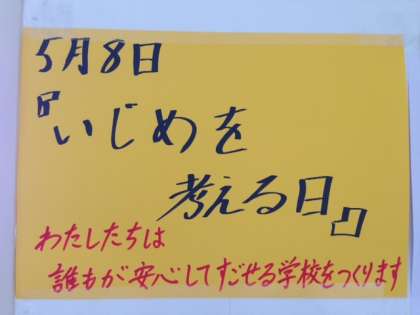 5月8日
『いじめを
考える日』
わたしたちは
誰もが安心してすごせる学校をつくります